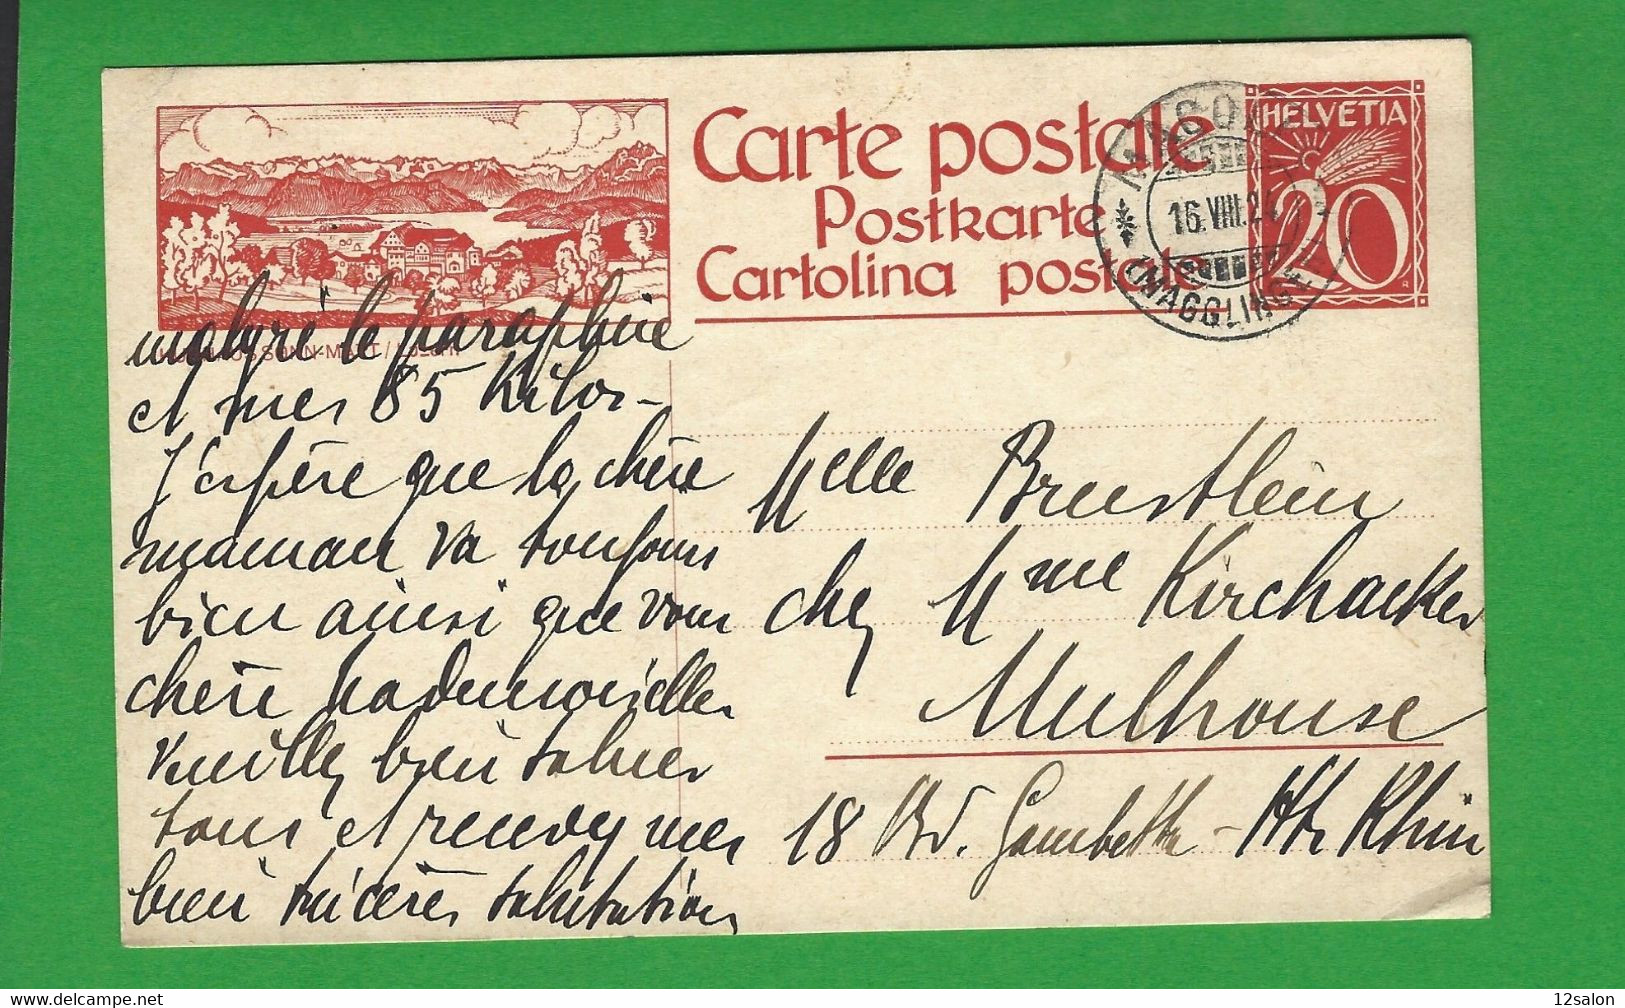 Carte postale
Postkarte
Cartolina postale
HELVETIA
20
16.VIII.24
(MAGGLINGEN)
malgré le parapluie
et mes 85 Kilos –
J'espère que la chère
maman va toujours
bien ainsi que vous
chère Mademoiselle,
Veuillez bien saluer
tous et recevez mes
bien sincères salutations
Melle Breustlein
chez Mme Kirchacker
Mulhouse
18 Bd. Gambetta – Ht. Rhin
https://www.delcampe.net
12salon